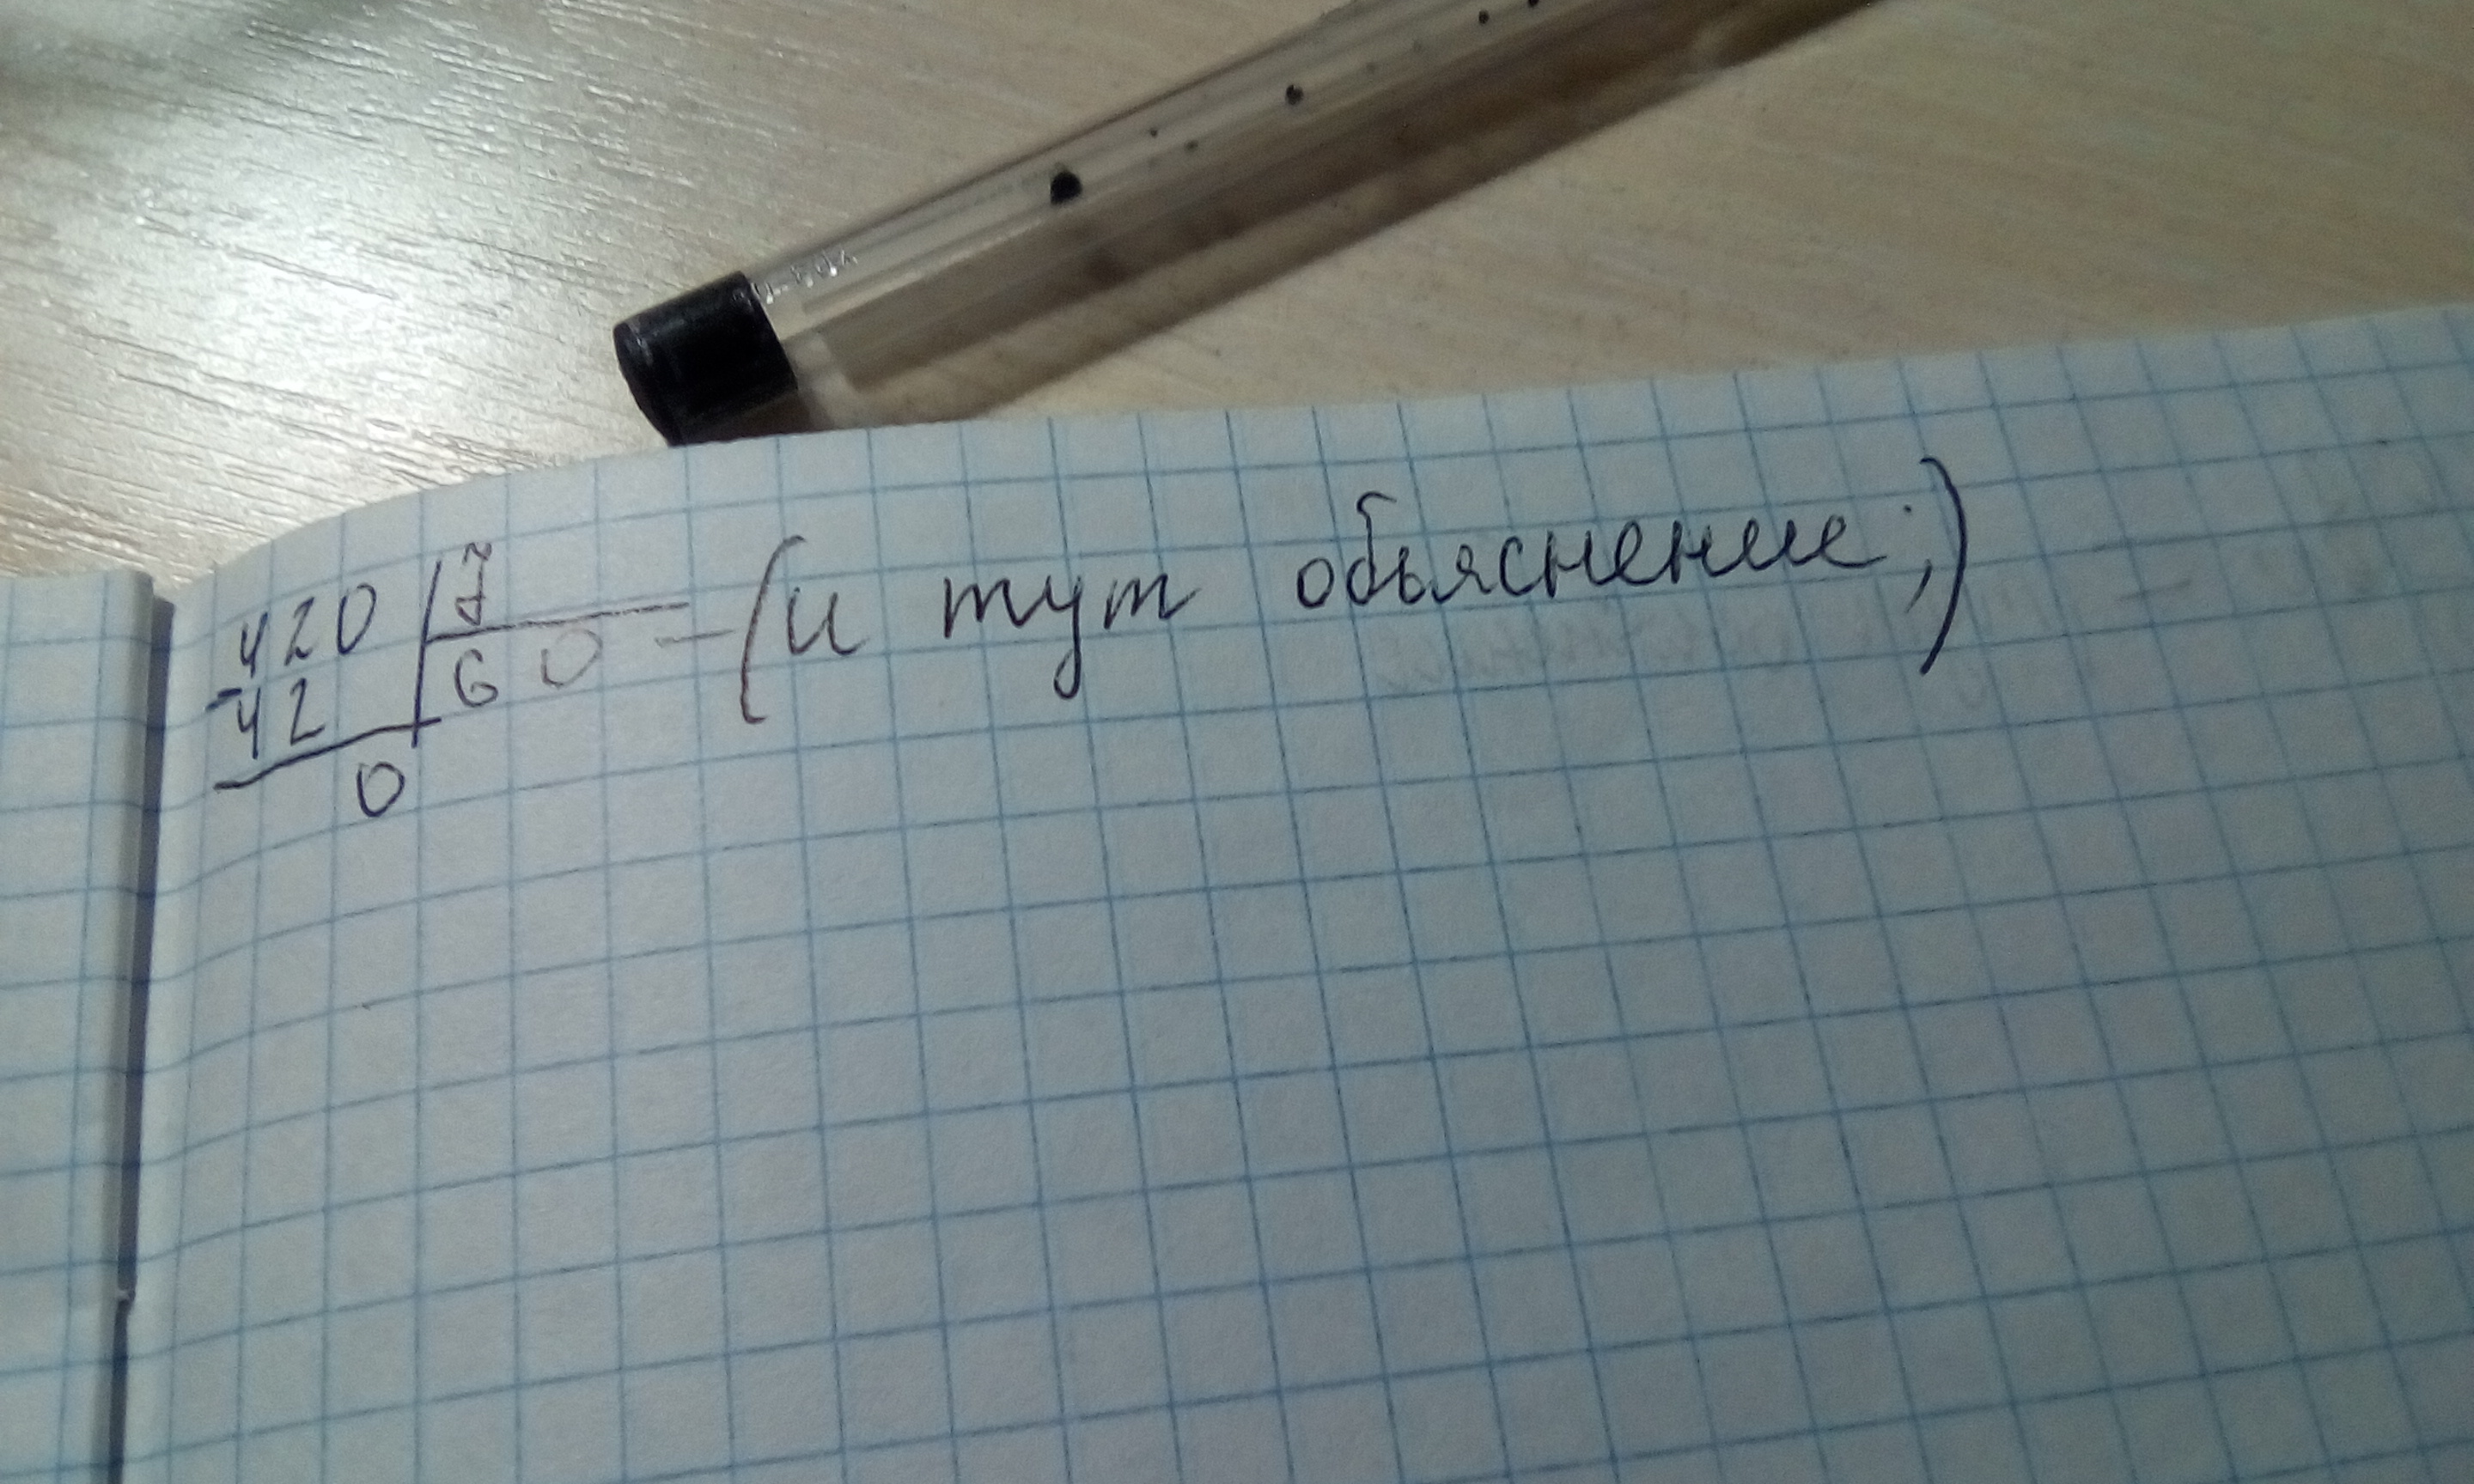 420 | 7
- 42 | 60 - (и тут обьяснение ;)
0